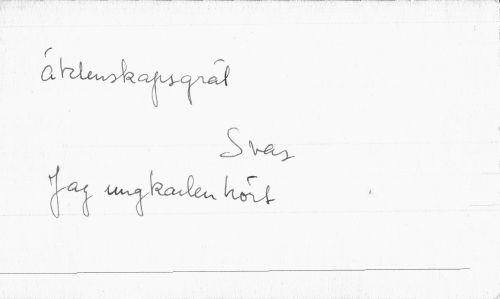 äktenskapsgräl
Svar
Jag ungkarlen hört